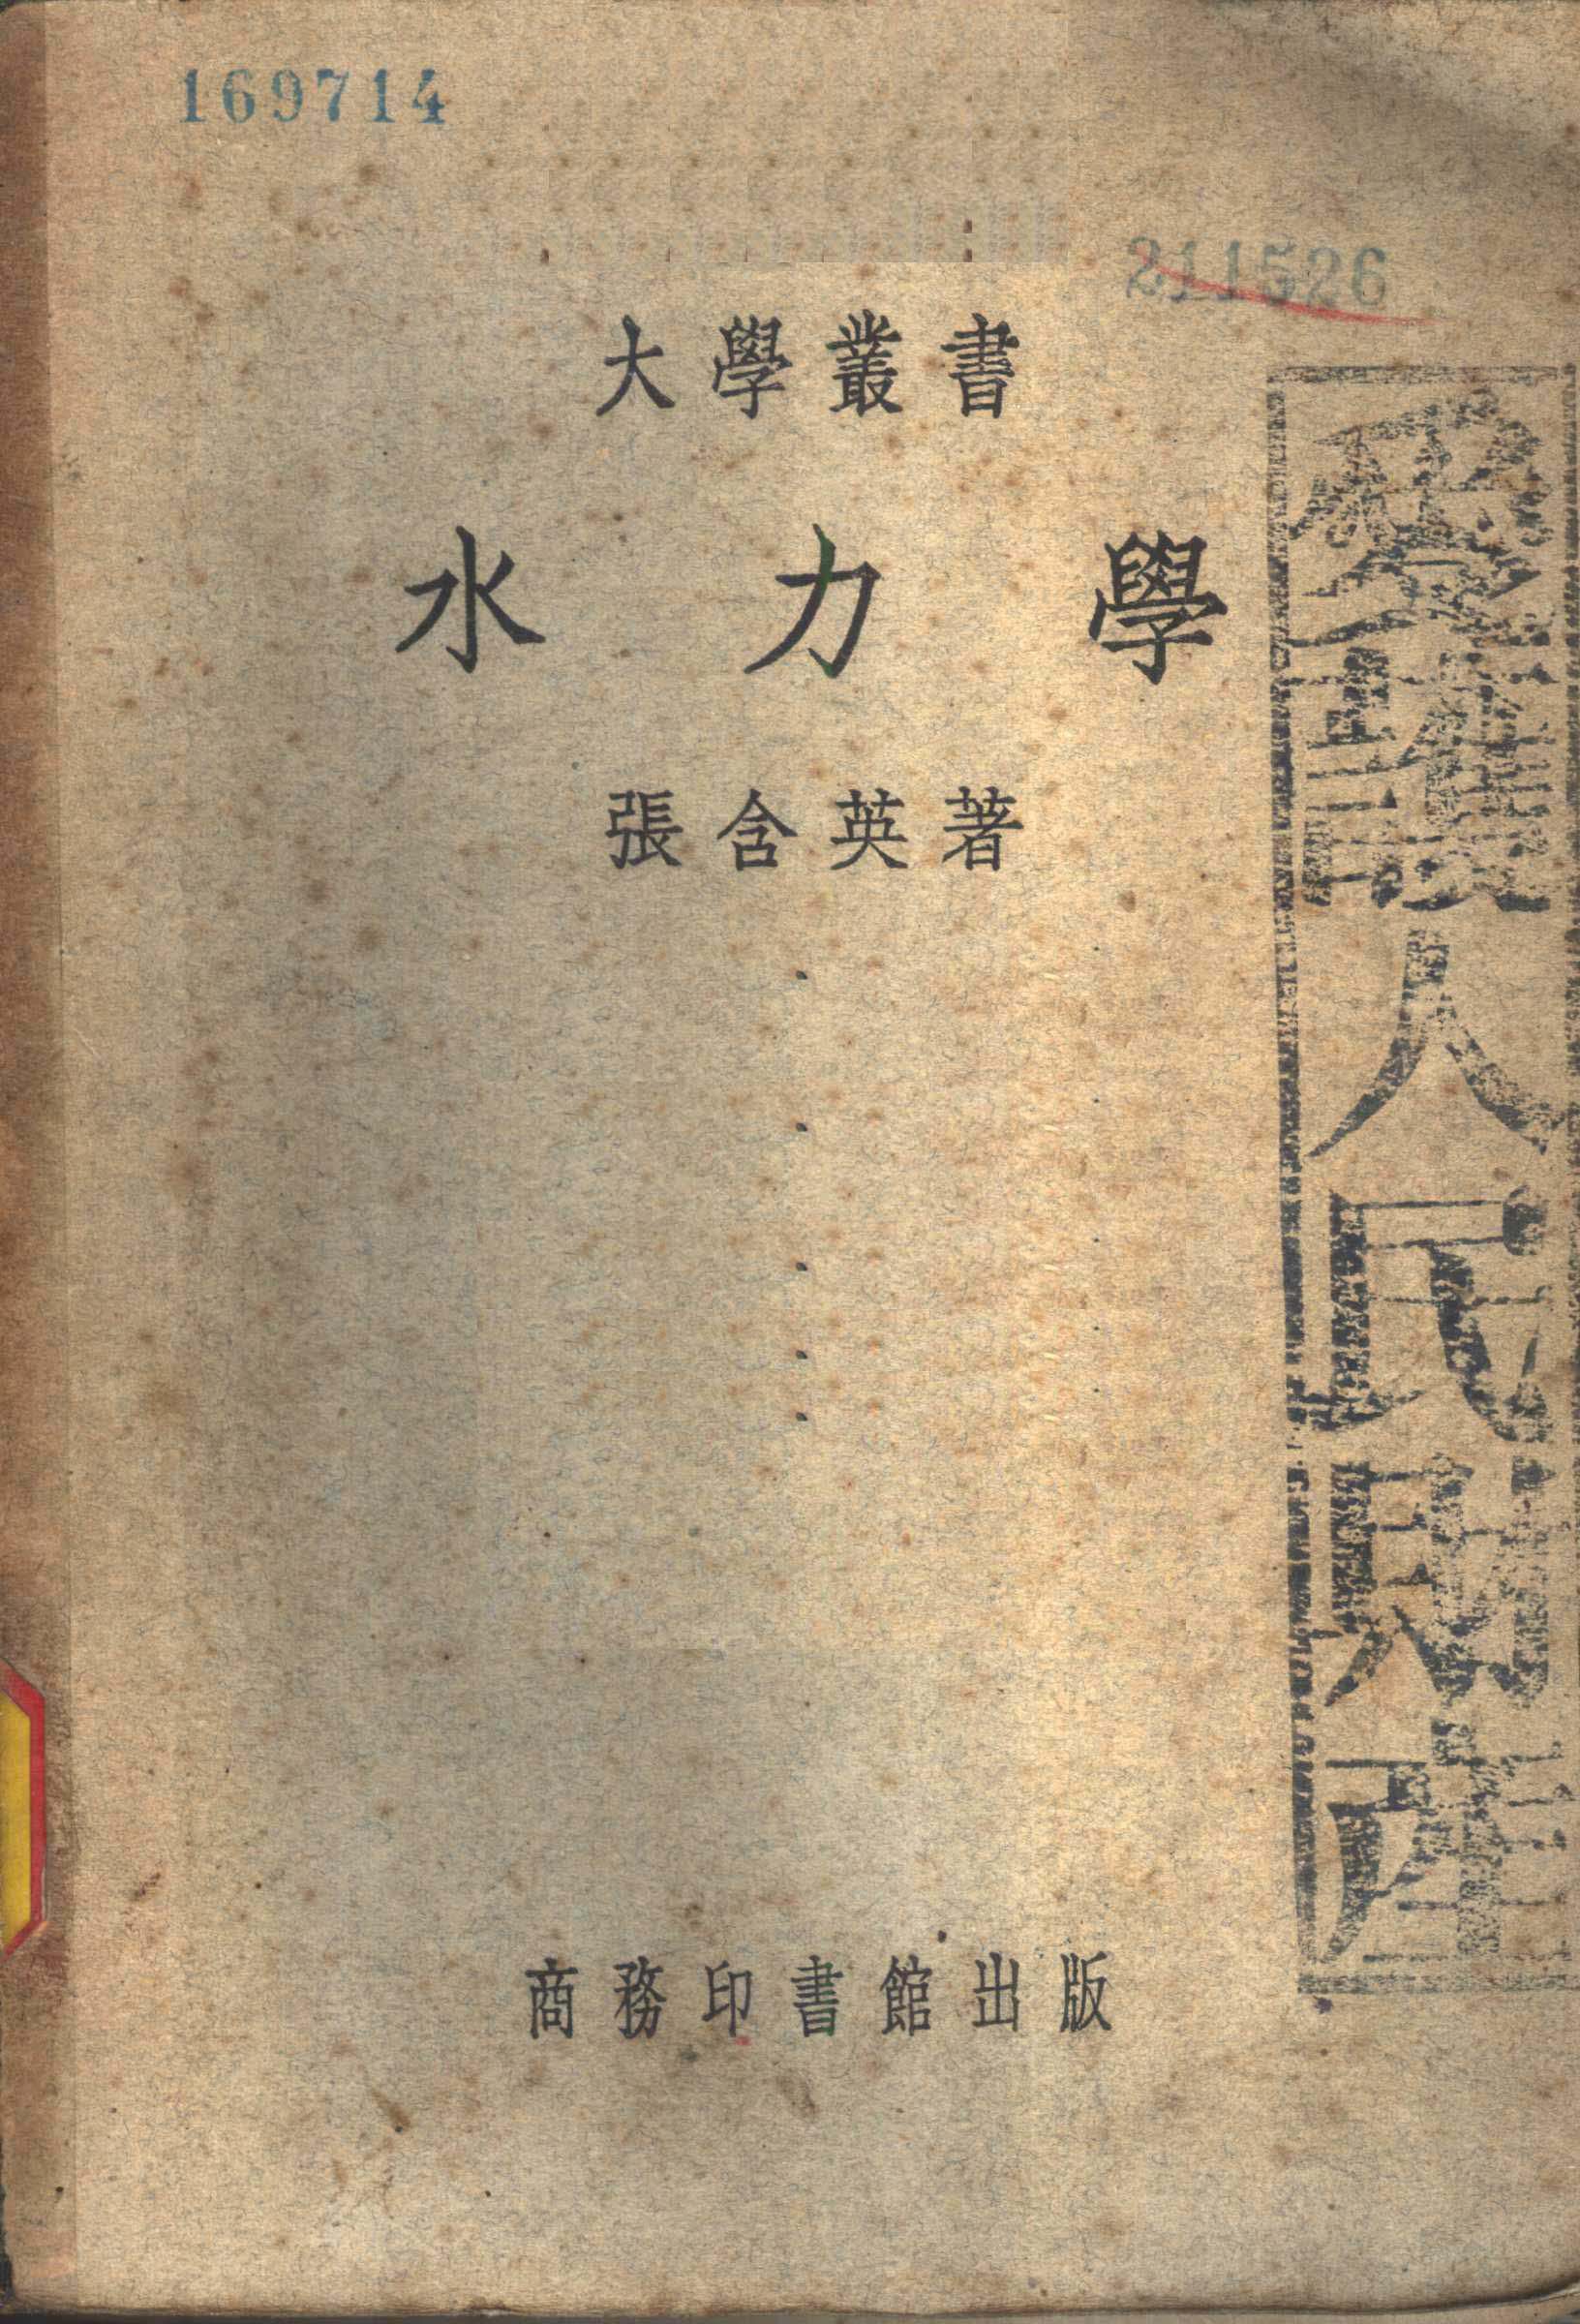 169714
211526
大學叢書
水力學
張含英著
愛護人民財產
商務印書館出版